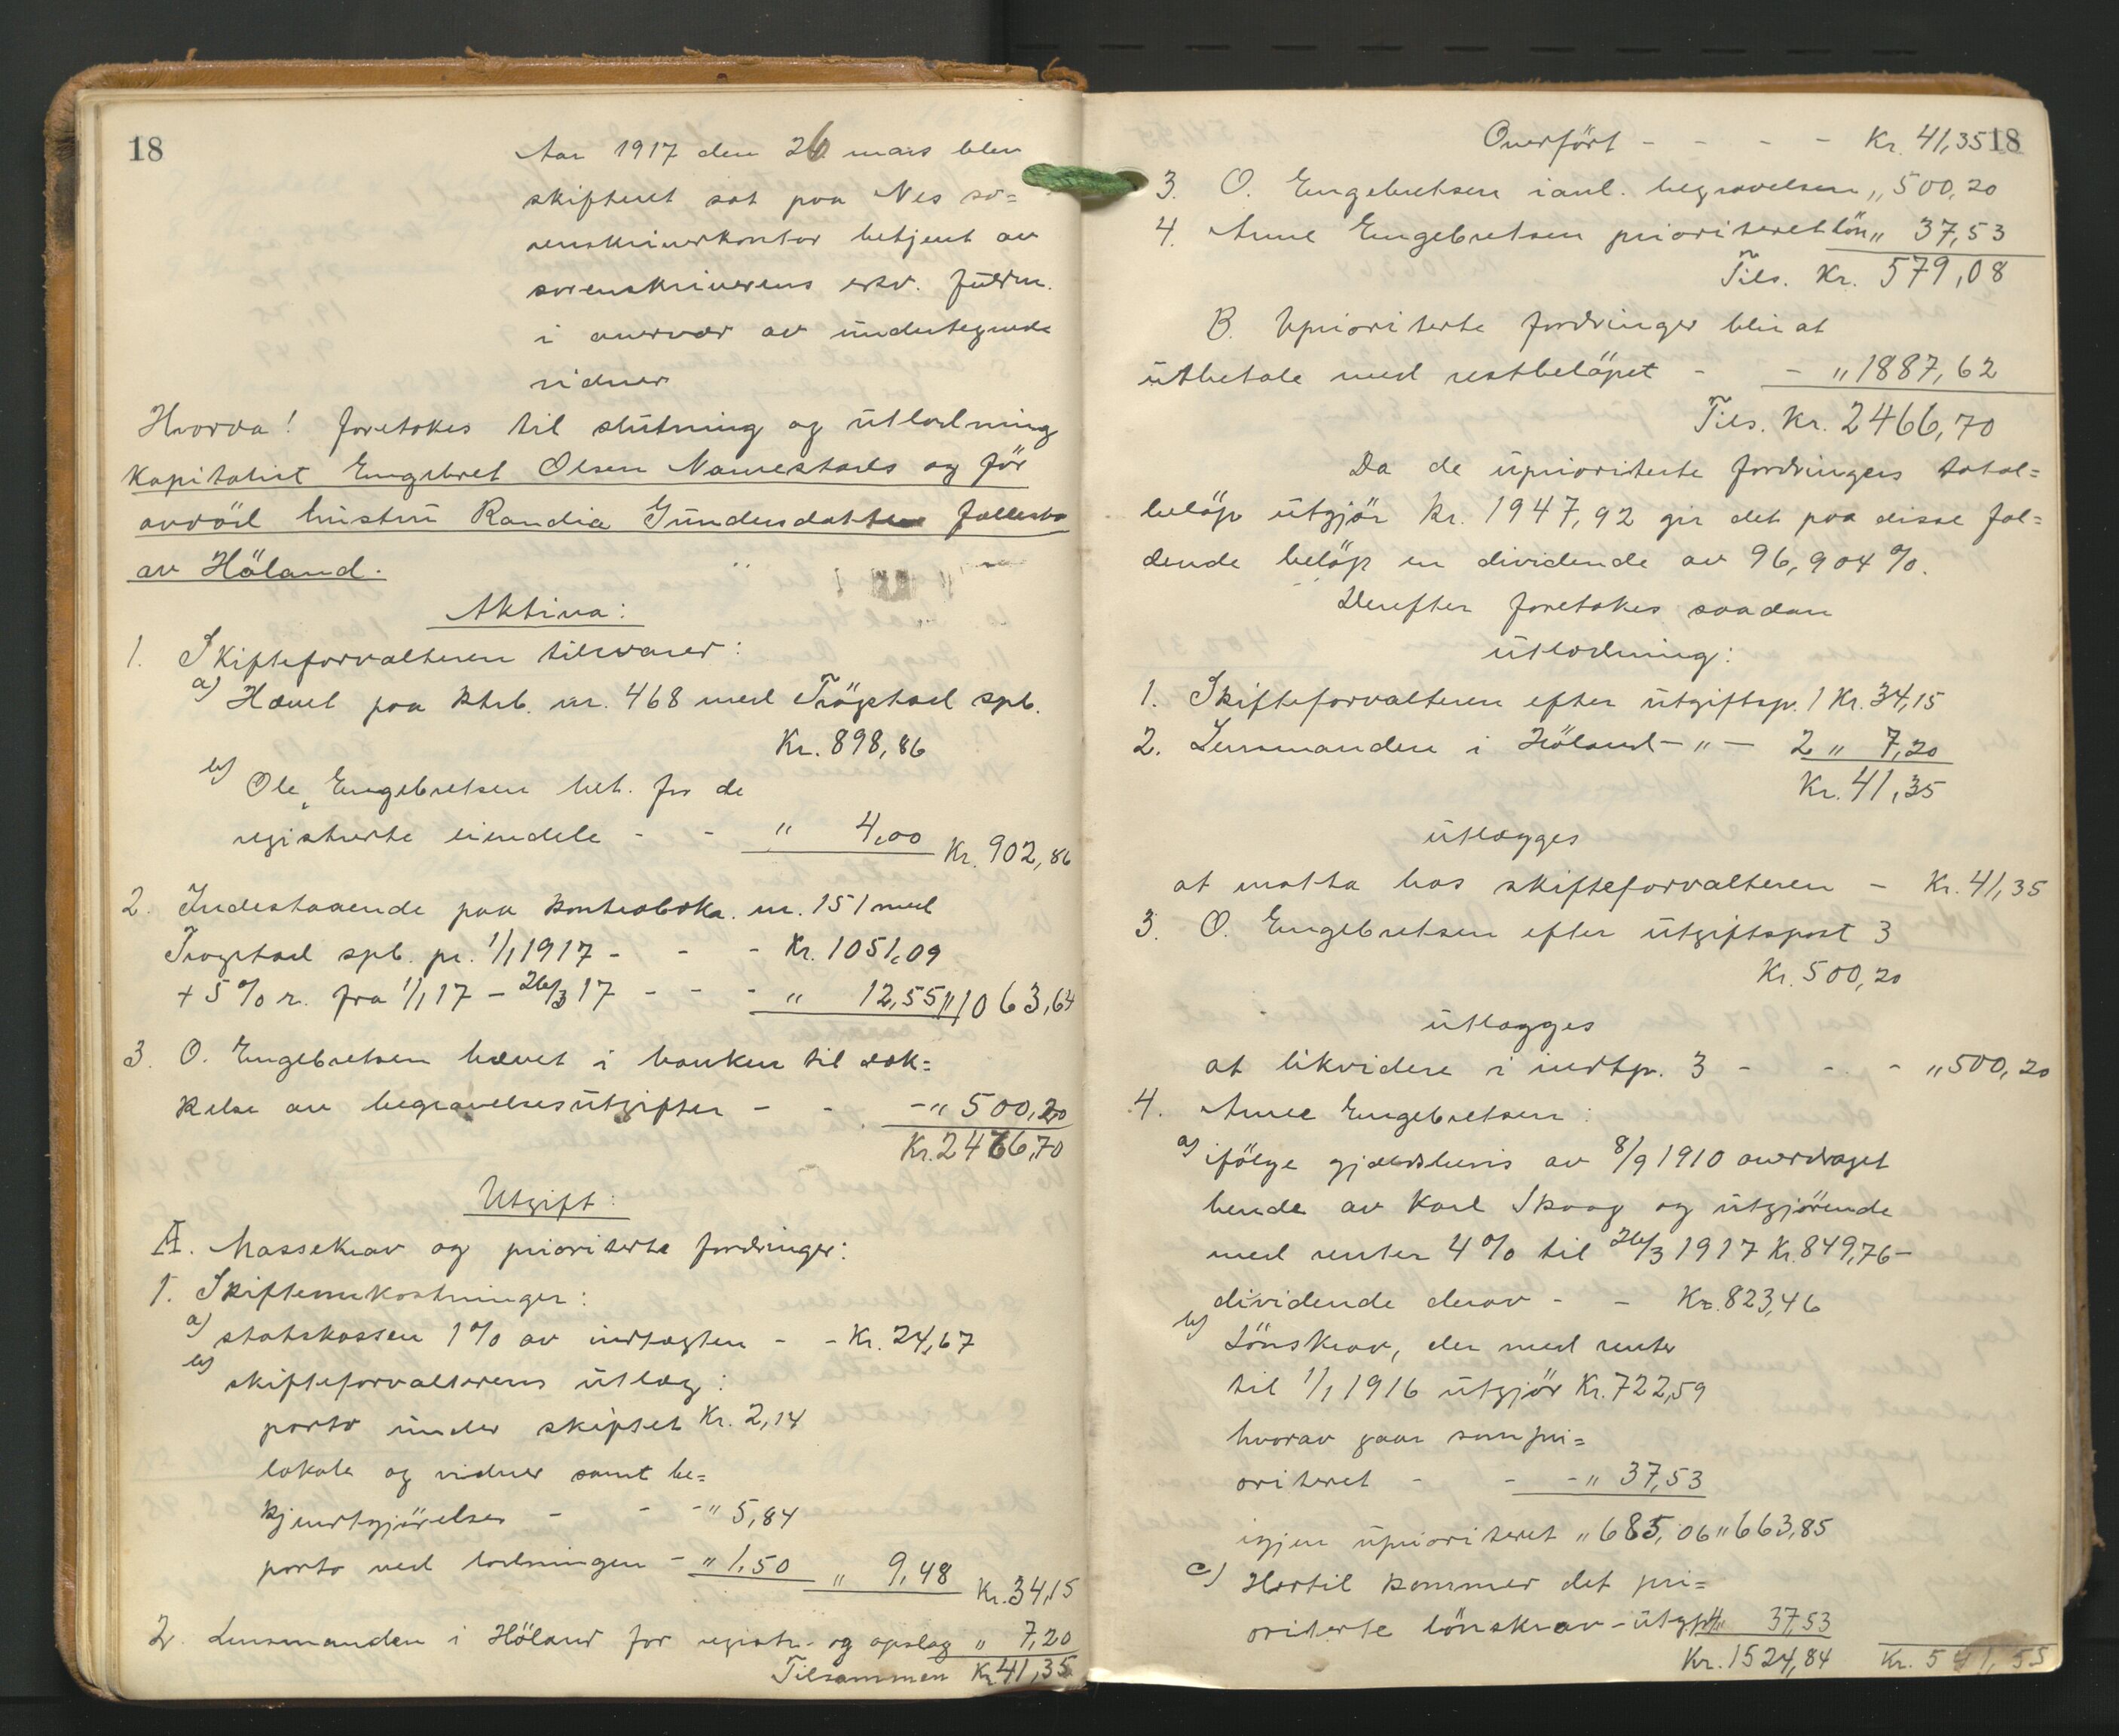 18
Aar 1917 den 26 mars blev
skifteret sat paa Nes so=
renskriverkontor betjent av
sorenskriverens esv. fuldm.
i overvær av undertegnede
vidner
Hvorda! foretokes til slutning og utlodning
Kapitalist Engebret Olsen Navnestads og før
avdöd hustru Randia Gundersdatter fællesbo
av Höland.
Aktiva:
1. Skifteforvalteren tilsvarer:
a) Hævet paa ktrb. nr. 468 med Trögstad spb.
Kr. 898,86
b) Ole Engebretsen bet. for de
registrerte eiendele - - " 4,00 Kr. 902,86
2. Indestaaende paa kontrabok. nr. 151 med
Trogstad spb. pr. 1/1 1917 - - - Kr. 1051,09
+ 5 % r. fra 1/1 17 - 26/3 17 - - - " 12,55 " 1063,64
3. O. Engebretsen hævet i banken til dæk=
kelse av begravelsesutgifter - - - " 500,20
Kr. 2466,70
Utgift:
A. Massekrav og prioriterte fordringer:
1. Skifteomkostninger:
a) statskassen 1 % av indtægten - - Kr. 24,67
b) skifteforvalterens utlæg:
porto under skiftet Kr. 2,14
lokale og vidner samt be=
kjendtgjörelser - - - " 5,84
porto ved lodningen - " 1,50 " 9,48 Kr. 34,15
2. Lensmanden i Höland for registr. og opslag " 7,20
Tilsammen Kr. 41,35
Overfört - - - - Kr. 41,35 18
3. O. Engebretsen i anl. begravelsen " 500,20
4. Anne Engebretsen prioriteret lön " 37,53
Tils. Kr. 579,08
B. Upriori terte fordringer blir at
utbetale med restbelöpet - - " 1887,62
Tils. Kr. 2466,70
Da de uprioriterte fordringers total=
belöp utgjör kr. 1947,92 gir det paa disse fal=
dende belöp en dividende av 96,904 %.
Derefter foretokes saadan
utlodning:
1. Skifteforvalteren efter utgiftsp. 1 Kr. 34,15
2. Lensmanden i Höland - " - 2 " 7,20
Kr. 41,35
utlægges
at motta hos skifteforvalteren - Kr. 41,35
3. O. Engebretsen efter utgiftspost 3
Kr. 500,20
utlægges
at likvidere i indtp. 3 - - - " 500,20
4. Anne Engebretsen:
a) ifölge gjældsbevis av 8/9 1910 overdraget
hende av Karl Skaag og utgjörende
med renter 4 % til 26/3 1917 Kr. 849,76 -
dividende derav - - Kr. 823,46
b) Lönskrav, der med renter
til 1/1 1916 utgjör Kr. 722,59
hvorav gaar som pri=
oriteret - - - " 37,53
igjen uprioriteret " 685,06 " 663,85
c) Hertil kommer det pri=
oriterte lönskrav - utgp. 4 " 37,53
Kr. 1524,84 Kr. 541,55